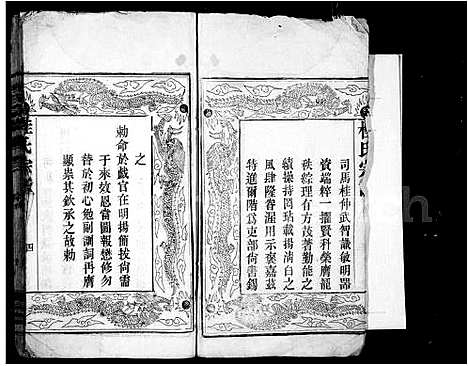 桂氏宗
司馬桂仲武智識敏明器
資端粹一擢賢科榮膺龍
秩綜理有方茂著勤能之
績操持罔玷載揚清白之
風肆隆眷渥用示褒嘉茲
特進爾階爲吏部尚書錫
之
勅命於戲官在明揚簡拔尚需
于來效恩當圖報懋修勿
替於初心勉副訓詞再膺
顯崇其欽承之故勅
桂氏宗
四